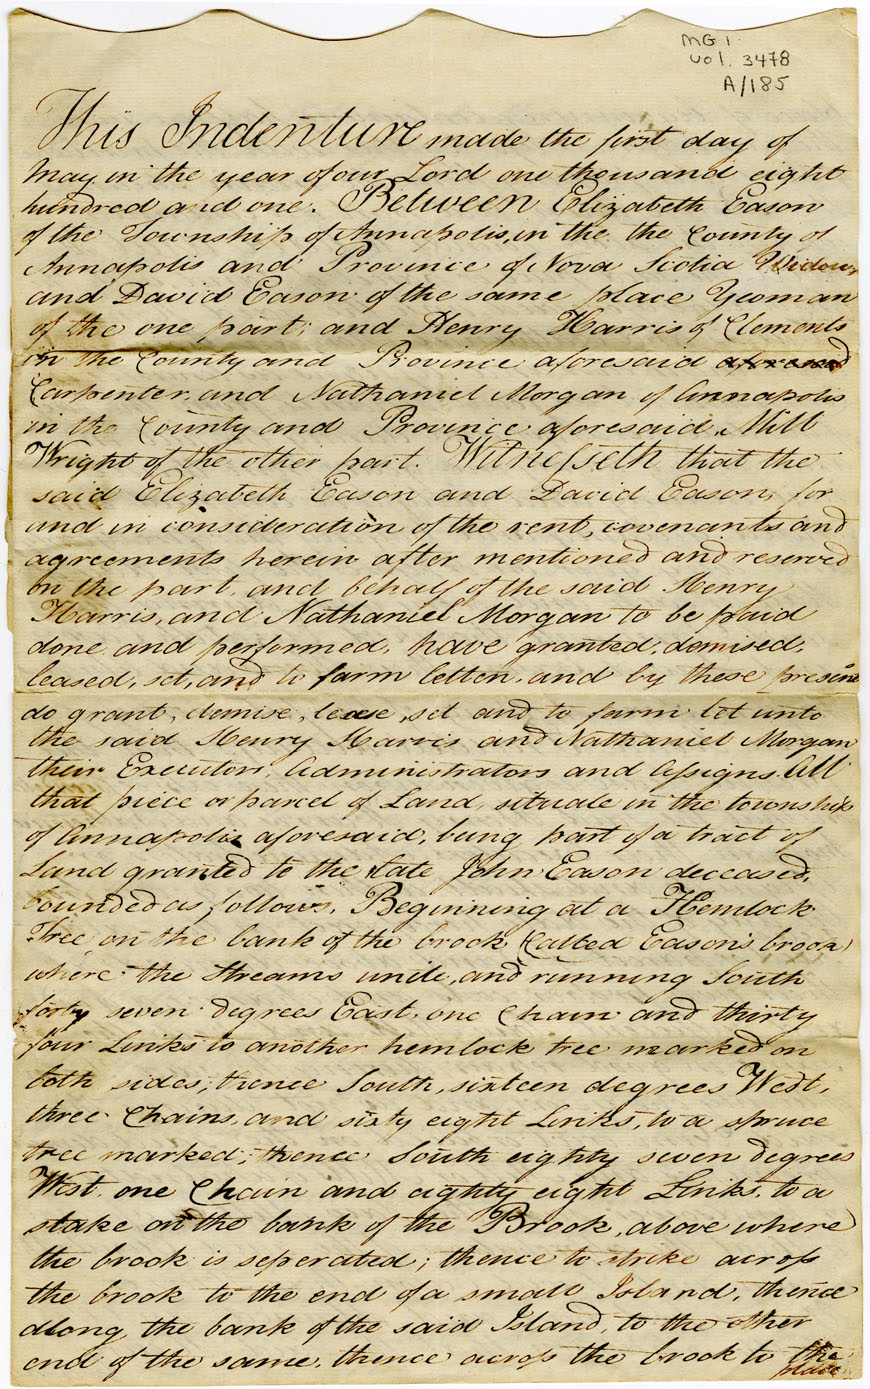 MG 1
vol. 3478
A/185
This Indenture made the first day of
May, in the year of our Lord one thousand eight
hundred and one. Between Elizabeth Eason
of the Township of Annapolis, in the the County of
Annapolis and Province of Nova Scotia Widow,
and David Eason of the same place Yeoman
of the one part; and Henry Harris of Clements
in the County and Province aforesaid
Carpenter and Nathaniel Morgan of Annapolis
in the County and Province aforesaid, Mill
Wright of the other part. Witnesseth that the
said Elizabeth Eason and David Eason, for
and in consideration of the rent, covenants and
agreements herein after mentioned and reserved
on the part, and behalf of the said Henry
Harris, and Nathaniel Morgan to be paid
done and performed, have granted, demised,
leased, set, and to farm letten, and by these presents
do grant, demise, lease, set and to farm let unto
the said Henry Harris and Nathaniel Morgan
their Executors, Administrators and Assigns. All
that piece or parcel of Land, situate in the township
of Annapolis aforesaid, being part of a tract of
Land granted to the late John Eason deceased,
bounded as follows, Beginning at a Hemlock
Tree on the bank of the brook (called Eason's brook)
where the streams unite, and running South
forty seven degrees East, one Chain and thirty
four Links to another hemlock tree marked on
both sides; thence South, sixteen degrees West,
three Chains, and sixty eight Links, to a spruce
tree marked; thence South eighty seven degrees
West, one Chain and eighty eight Links, to a
stake on the bank of the Brook, above where
the brook is seperated; thence to strike across
the brook to the end of a small Island, thence
along the bank of the said Island, to the other
end of the same, thence across the brook to the
place